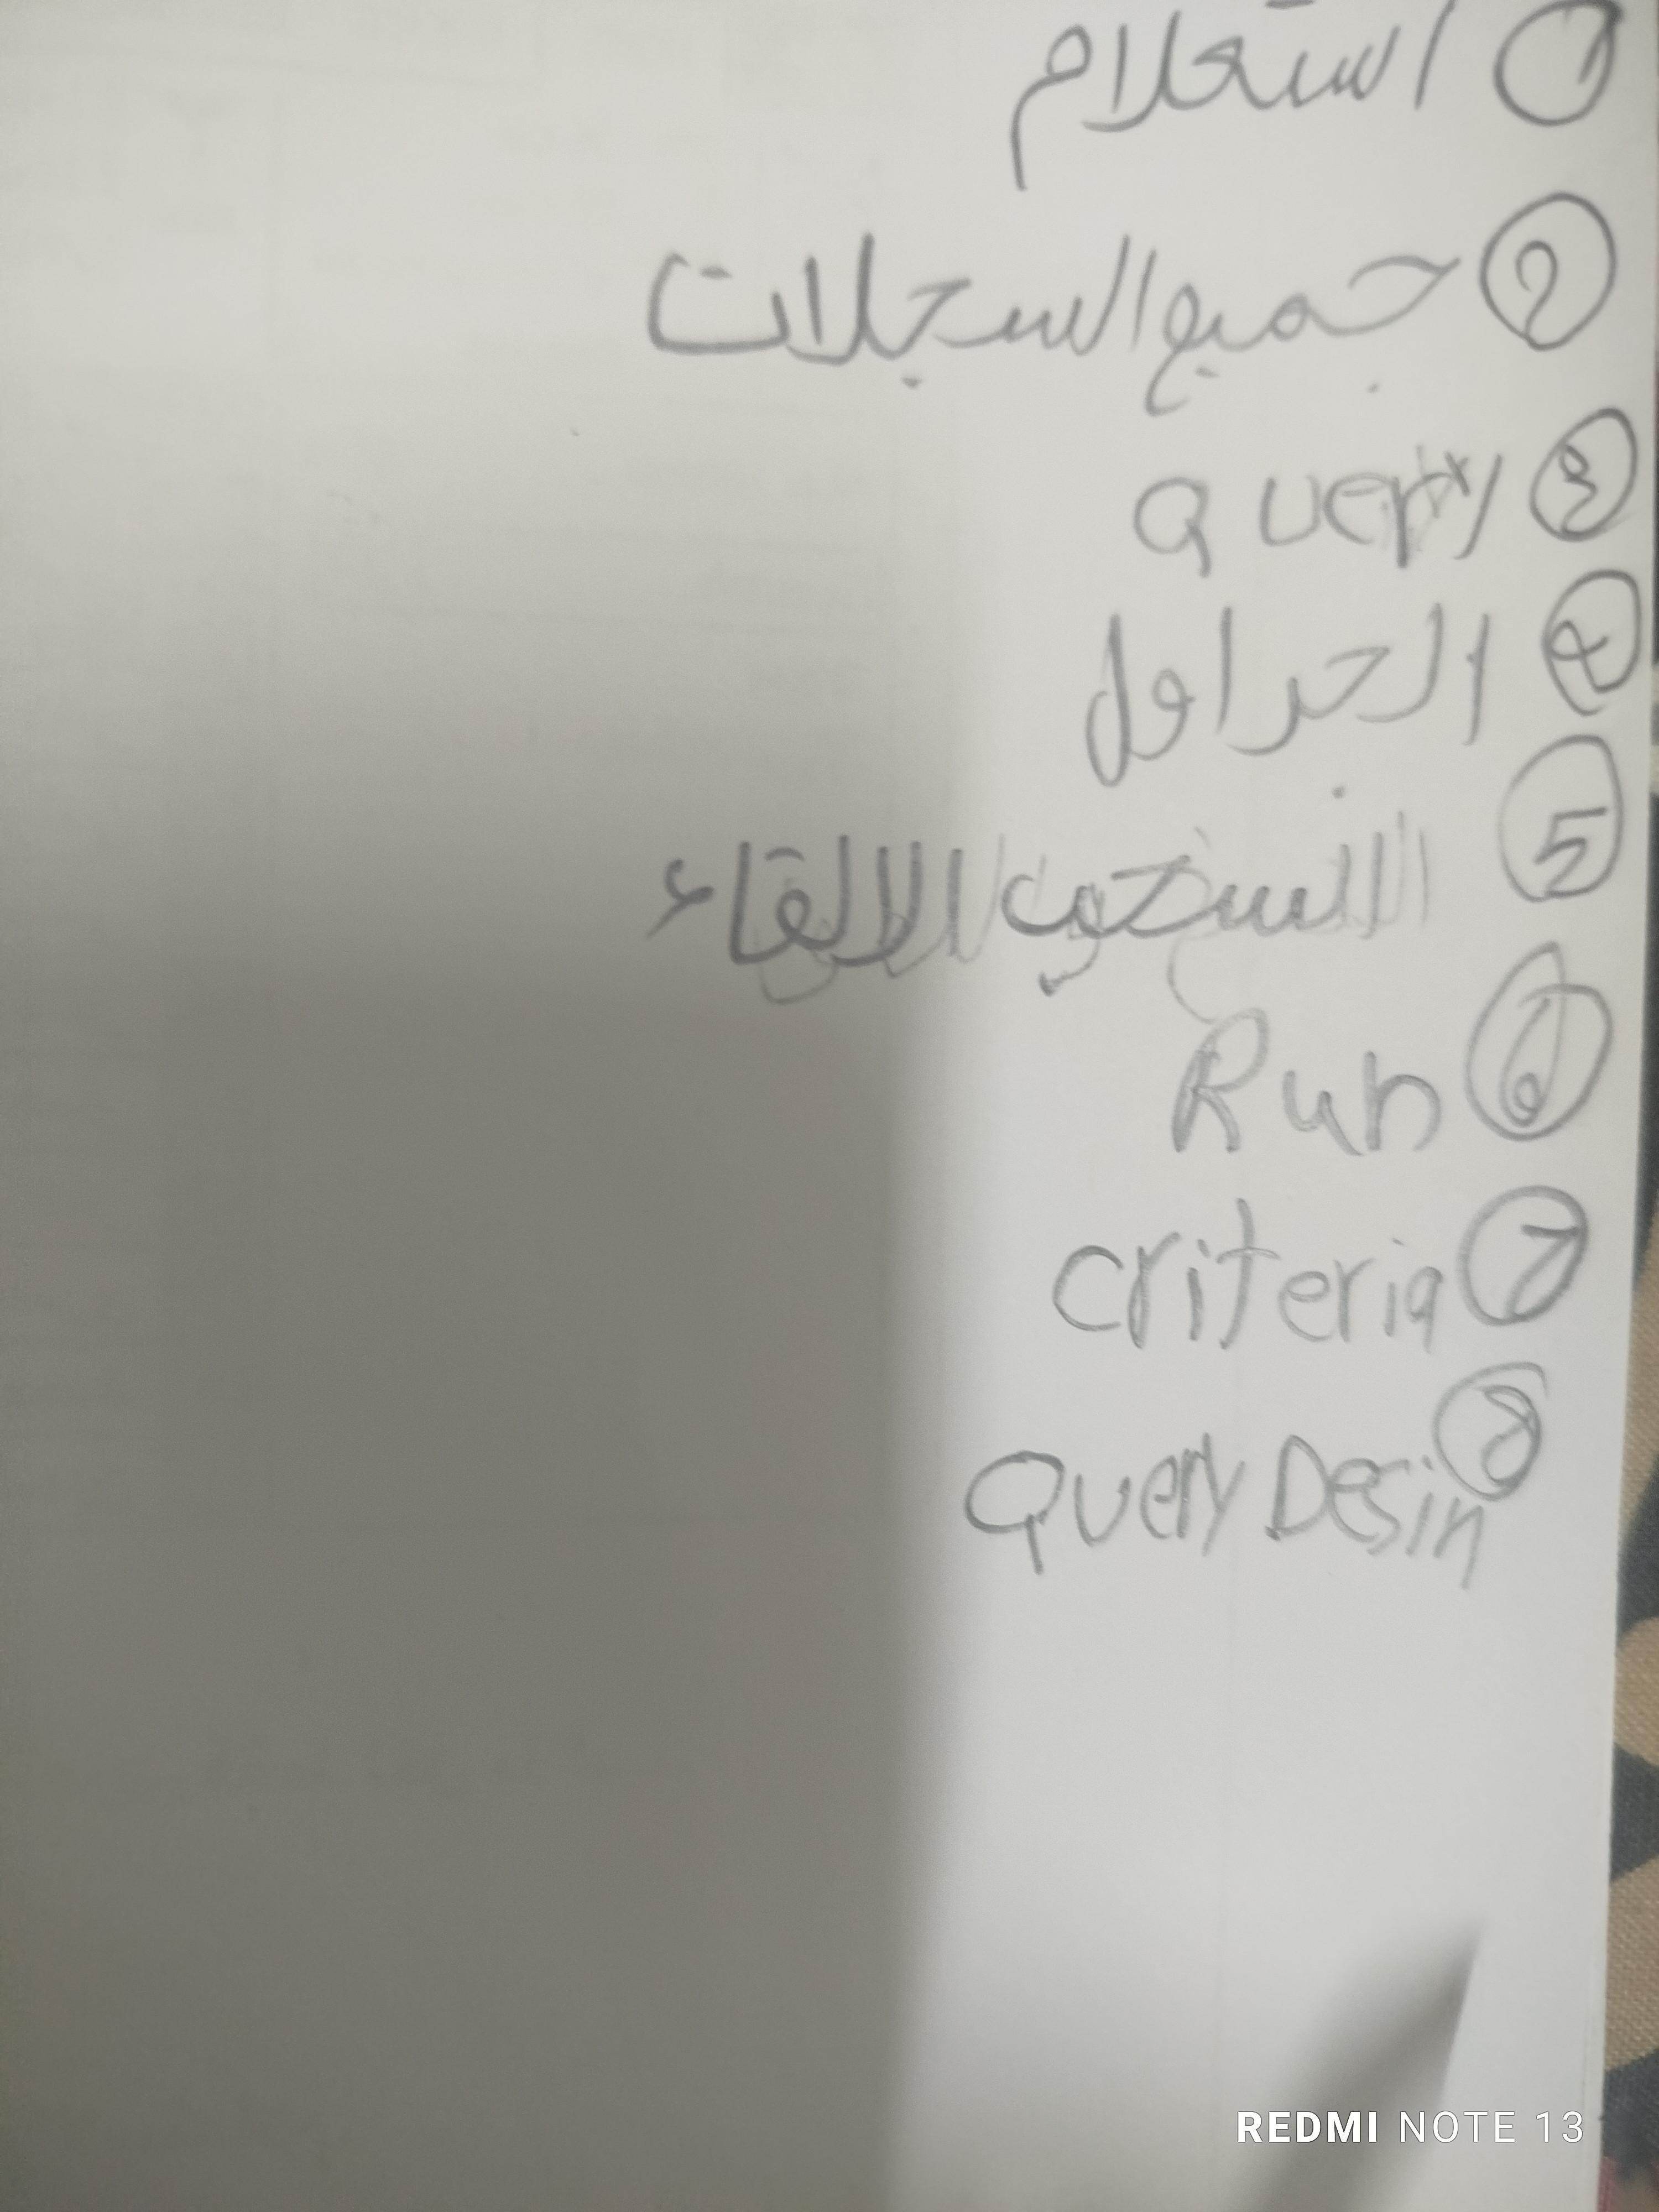 ① استعلام
② جميع السجلات
③ Query
④ الجداول
⑤ السحب الالقاء
⑥ Run
⑦ Criteria
⑧ Query Desin
REDMI NOTE 13